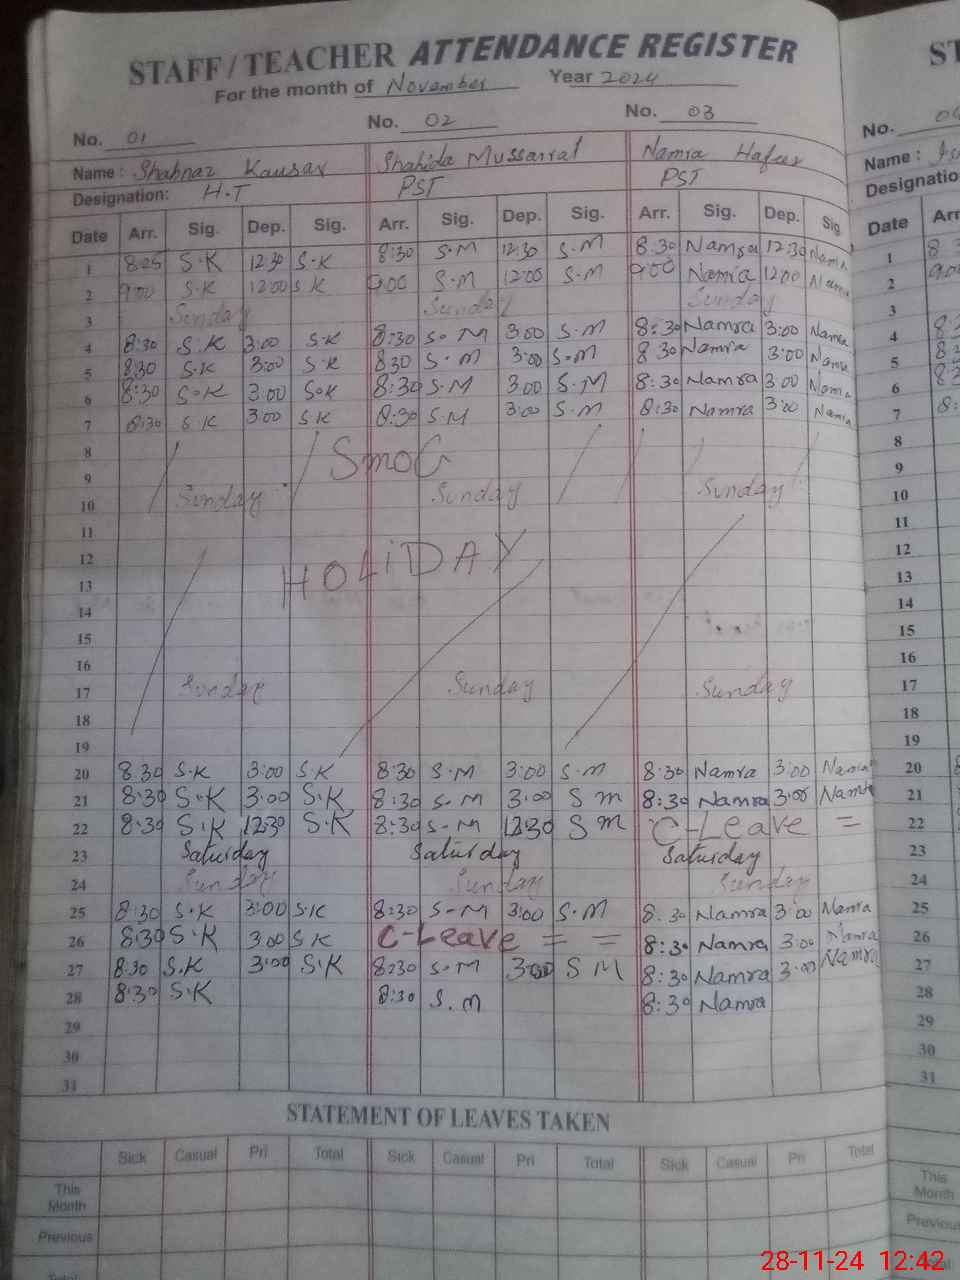 STAFF / TEACHER ATTENDANCE REGISTER
For the month of November Year 2024
No. 01 No. 02 No. 03
Name : Shahnaz Kausar Shahida Mussarrat Namra
Designation: H.T PST PST
Date Arr. Sig. Dep. Sig. Arr. Sig. Dep. Sig. Arr. Sig. Dep. Sig
1 8:25 S.K 12:30 S.K 8:30 S.M 12:30 S.M 8:30 Namra 12:30 Namra
2 9:00 S.K 12:00 S.K 9:00 S.M 12:00 S.M 9:00 Namra 12:00 Namra
3 Sunday Sunday Sunday
4 8:30 S.K 3:00 S.K 8:30 S.M 3:00 S.M 8:30 Namra 3:00 Namra
5 8:30 S.K 3:00 S.K 830 S.M 3:00 S.M 8 30 Namra 3:00 Namra
6 8:30 S.K 3:00 S.K 8:30 S.M 3:00 S.M 8:30 Namra 3:00 Namra
7 8:30 S.K 3:00 S.K 8:30 S.M 3:00 S.M 8:30 Namra 3:00 Namra
8 SMOG
9
10 Sunday Sunday Sunday
11
12 HOLiDAY
13
14
15
16
17 Sunday Sunday Sunday
18
19
20 8:30 S.K 3:00 S.K 8:30 S.M 3:00 S.M 8:30 Namra 3:00 Namra
21 8:30 S.K 3:00 S.K 8:30 S.M 3:00 S M 8:30 Namra 3:00 Namra
22 8:30 S.K 12:30 S.K 8:30 S.M 12:30 S M C-Leave =
23 Saturday Saturday Saturday
24 Sunday Sunday Sunday
25 8:30 S.K 3:00 S.K 8:30 S.M 3:00 S.M 8:30 Namra 3:00 Namra
26 8:30 S.K 3:00 S K C-Leave = = 8:30 Namra 3:00 Namra
27 8:30 S.K 3:00 S.K 8:30 S.M 3:00 S M 8:30 Namra 3:00 Namra
28 8:30 S.K 8:30 S.M 8:30 Namra
29
30
31
STATEMENT OF LEAVES TAKEN
Sick Casual Pri Total Sick Casual Pri Total Sick Casual Pri Total
This Month
Previous
Total
No. 04
Name :
Designatio
Date Arr
1 8 3
2 9:00
3
4 8 3
5 8
6 8 3
7 8:
8
9
10
11
12
13
14
15
16
17
18
19
20
21
22
23
24
25
26
27
28
29
30
31
This Month
Previous
28-11-24 12:42